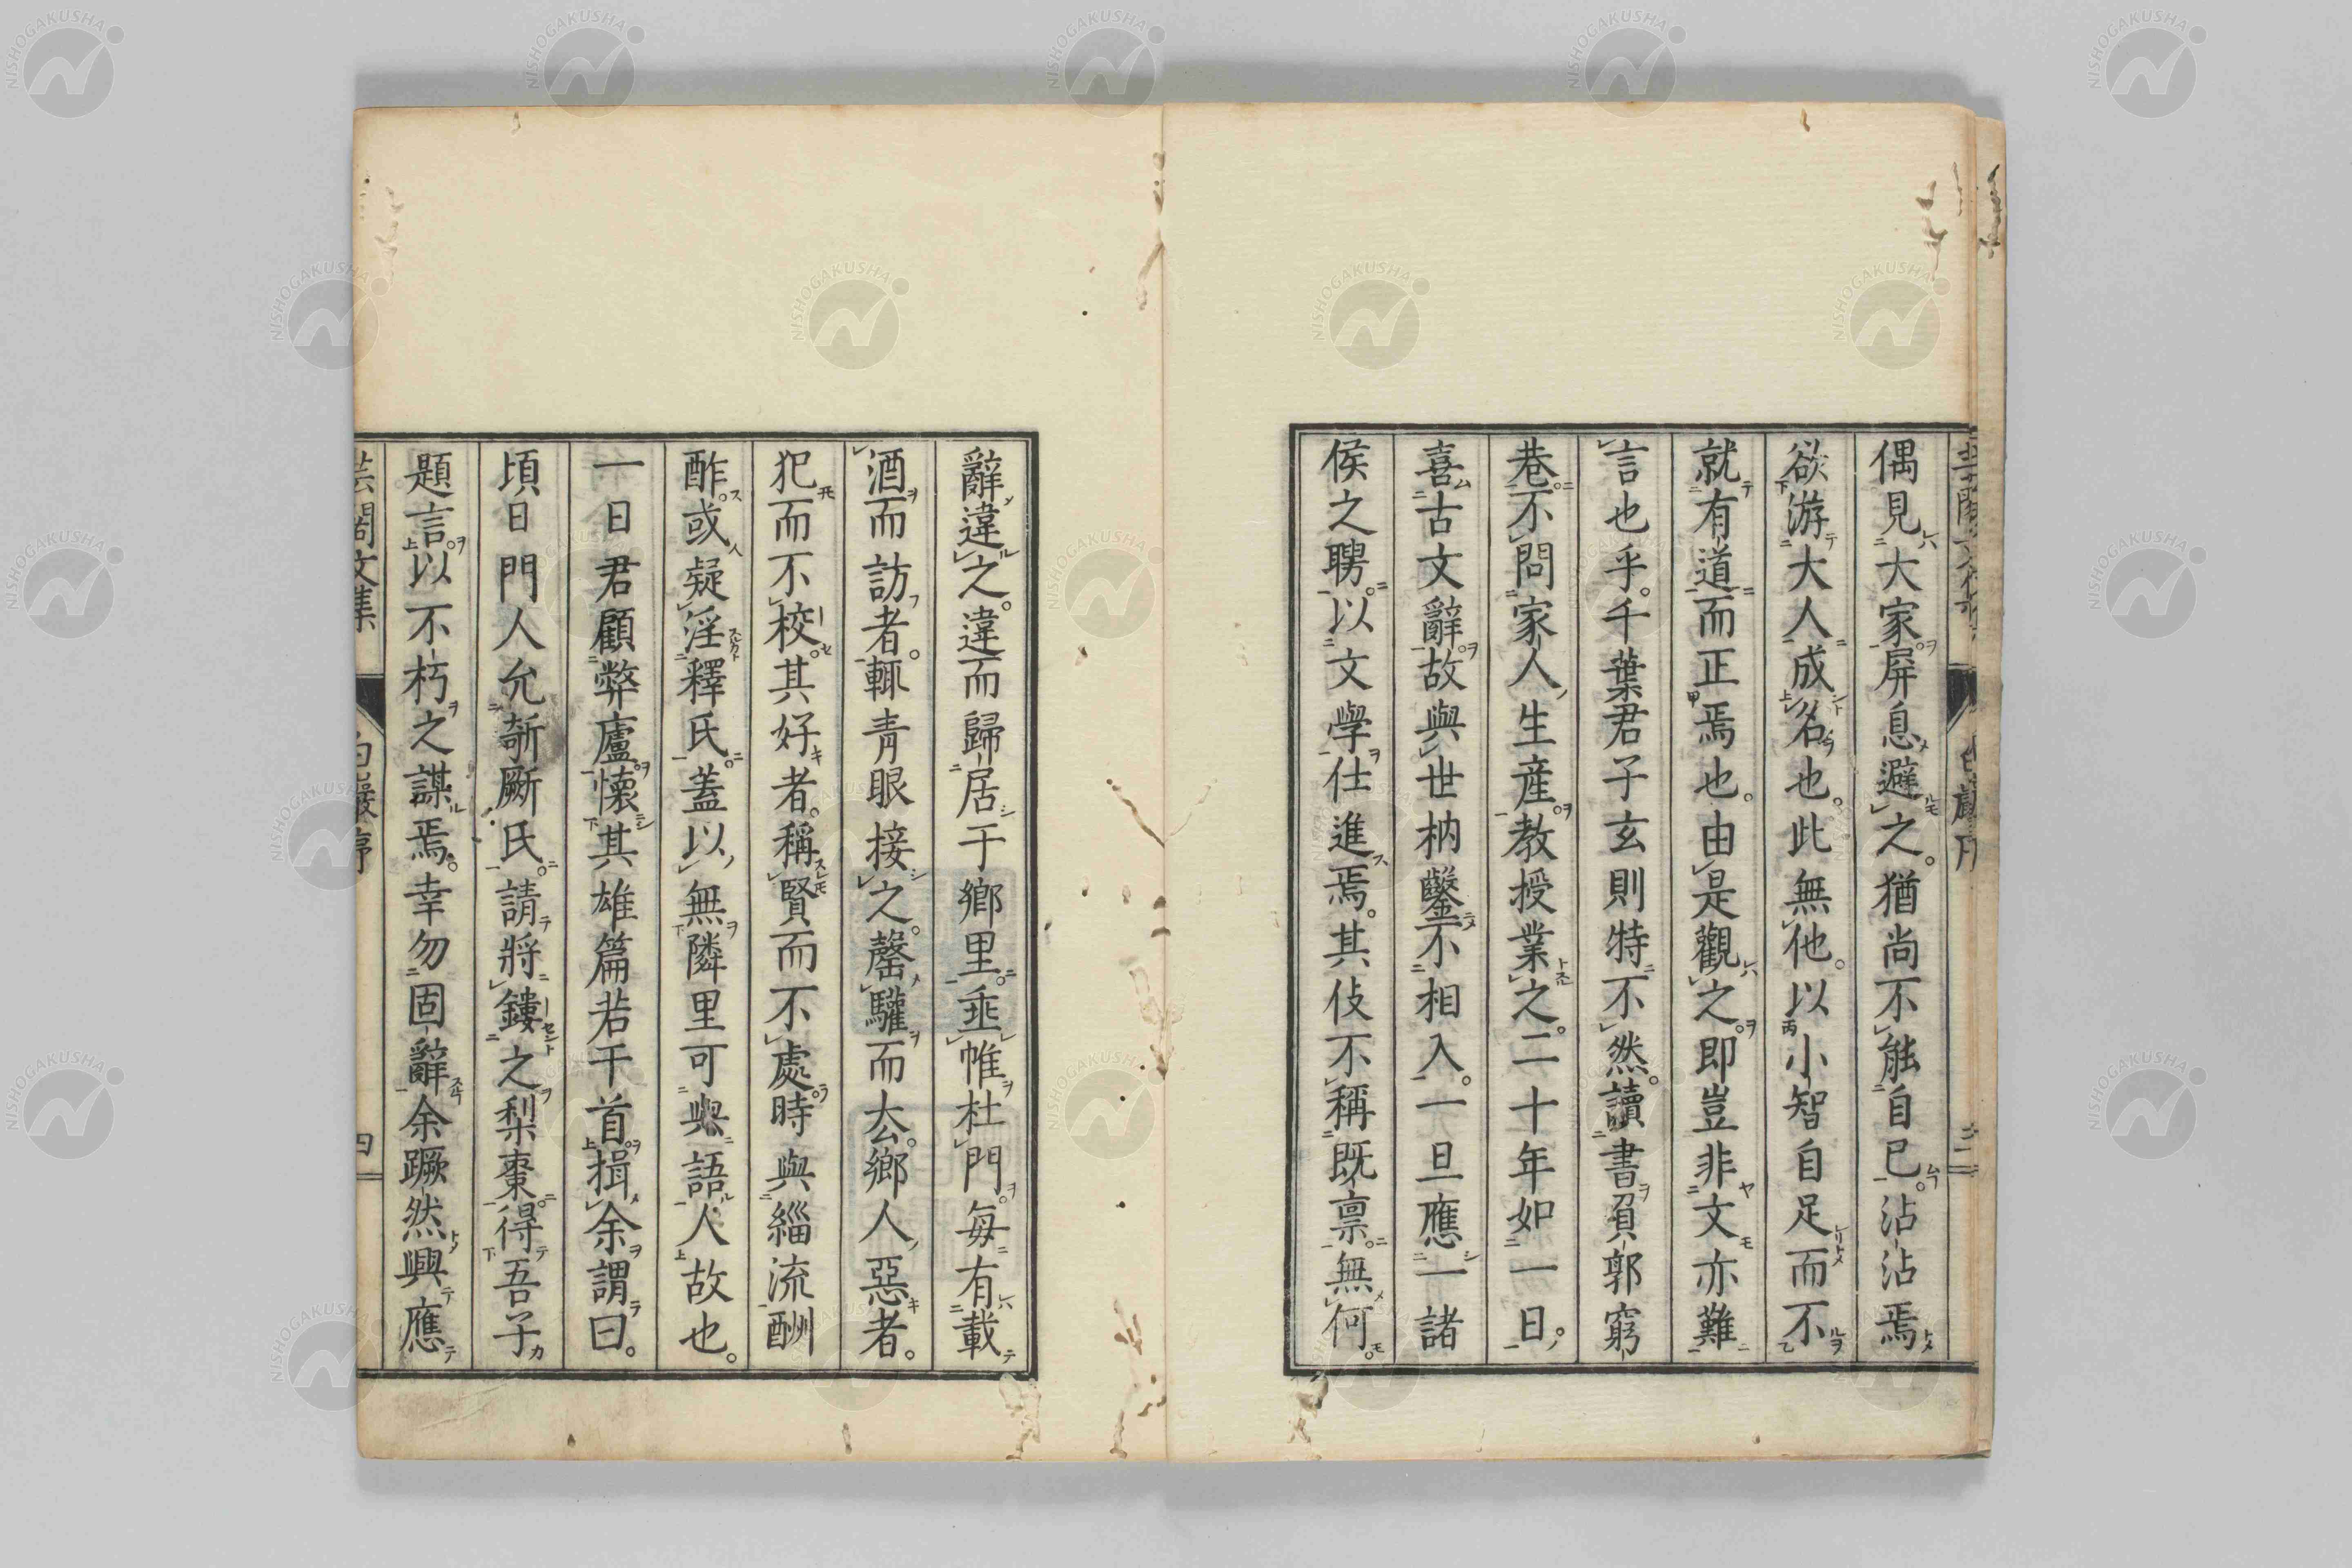 偶見大家屏息避之。猶尚不能自已。沾沾焉
欲游大人成名也。此無他。以小智自足而不
就有道而正焉也。由是觀之。即豈非文亦難
言也乎。千葉君子玄則特不然。讀書負郭窮
巷。不問家人生産。教授業之。二十年如一日。
喜古文辭。故與世枘鑿不相入。一旦應一諸
侯之聘。以文學仕進焉。其伎不稱既禀。無何。
辭違之。違而歸居于鄉里。垂帷杜門。每有載
酒而訪者。輒青眼接之。罄驩而厺。鄉人惡者。
犯而不校。其好者。稱賢而不處。時與緇流酬
酢。或疑淫釋氏。蓋以無隣里可與語人故也。
一日君顧弊廬。懷其雄篇若干首。揖余謂曰。
頃日門人允斮厥氏。請將鏤之梨棗。得吾子
題言。以不朽之謀焉。幸勿固辭余蹶然興應
芸閣文集
白巖序
四